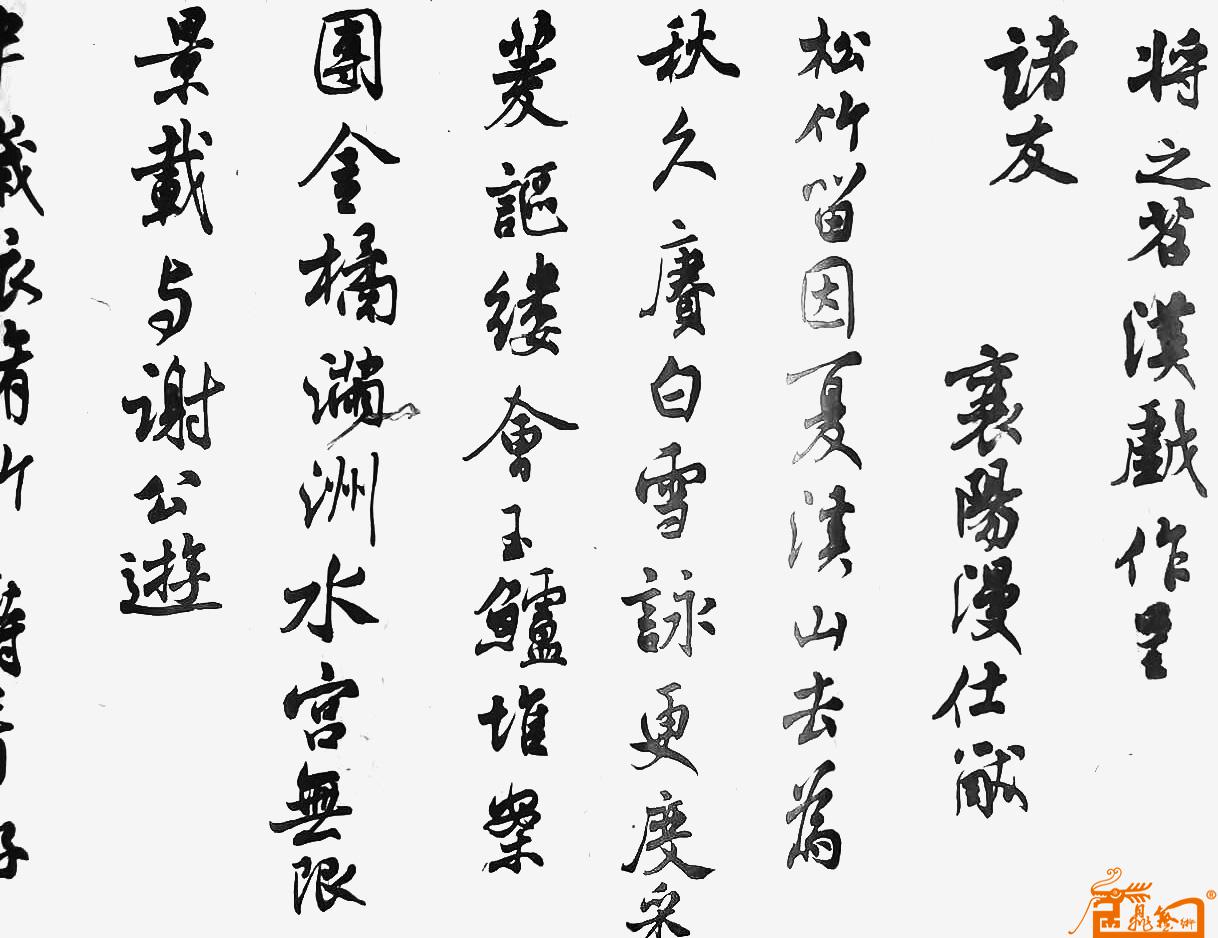 将之苕溪戲作呈
諸友
襄陽漫仕黻
松竹留因夏溪山去為
秋久賡白雪詠更度采
菱謳縷會玉鱸堆案
團金橘滿洲水宮無限
景載与謝公遊
半歲依